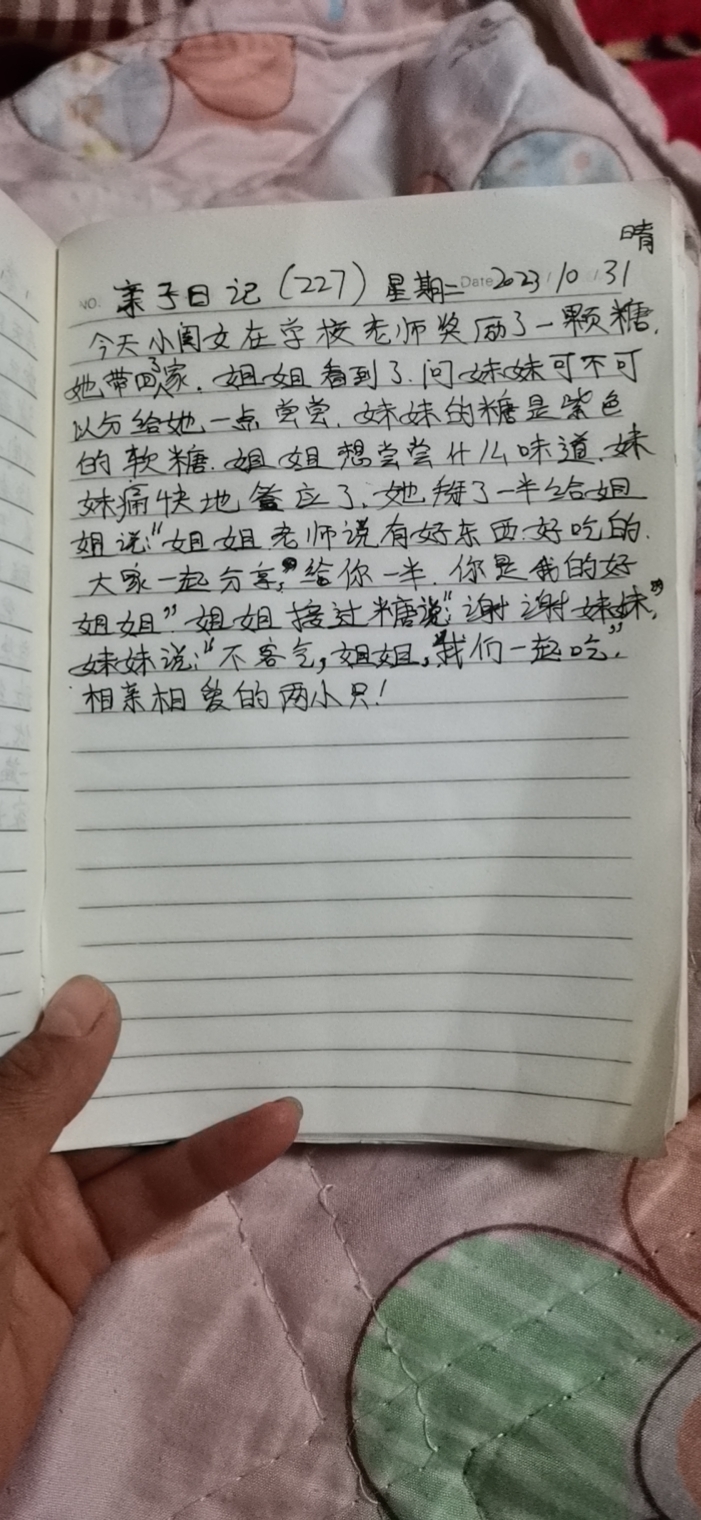 晴
NO. 亲子日记（227）星期二 Date 2023/10/31
今天小闺女在学校老师奖励了一颗糖，
她带回了家．姐姐看到了．问妹妹可不可
以分给她一点尝尝．妹妹的糖是紫色
的软糖．姐姐想尝尝什么味道．妹
妹痛快地答应了．她掰了一半给姐
姐说：“姐姐老师说有好东西．好吃的．
大家一起分享，”给你一半．你是我的好
姐姐”姐姐接过糖说：“谢谢妹妹”，
妹妹说：“不客气，姐姐，“我们一起吃”．
相亲相爱的两小只！